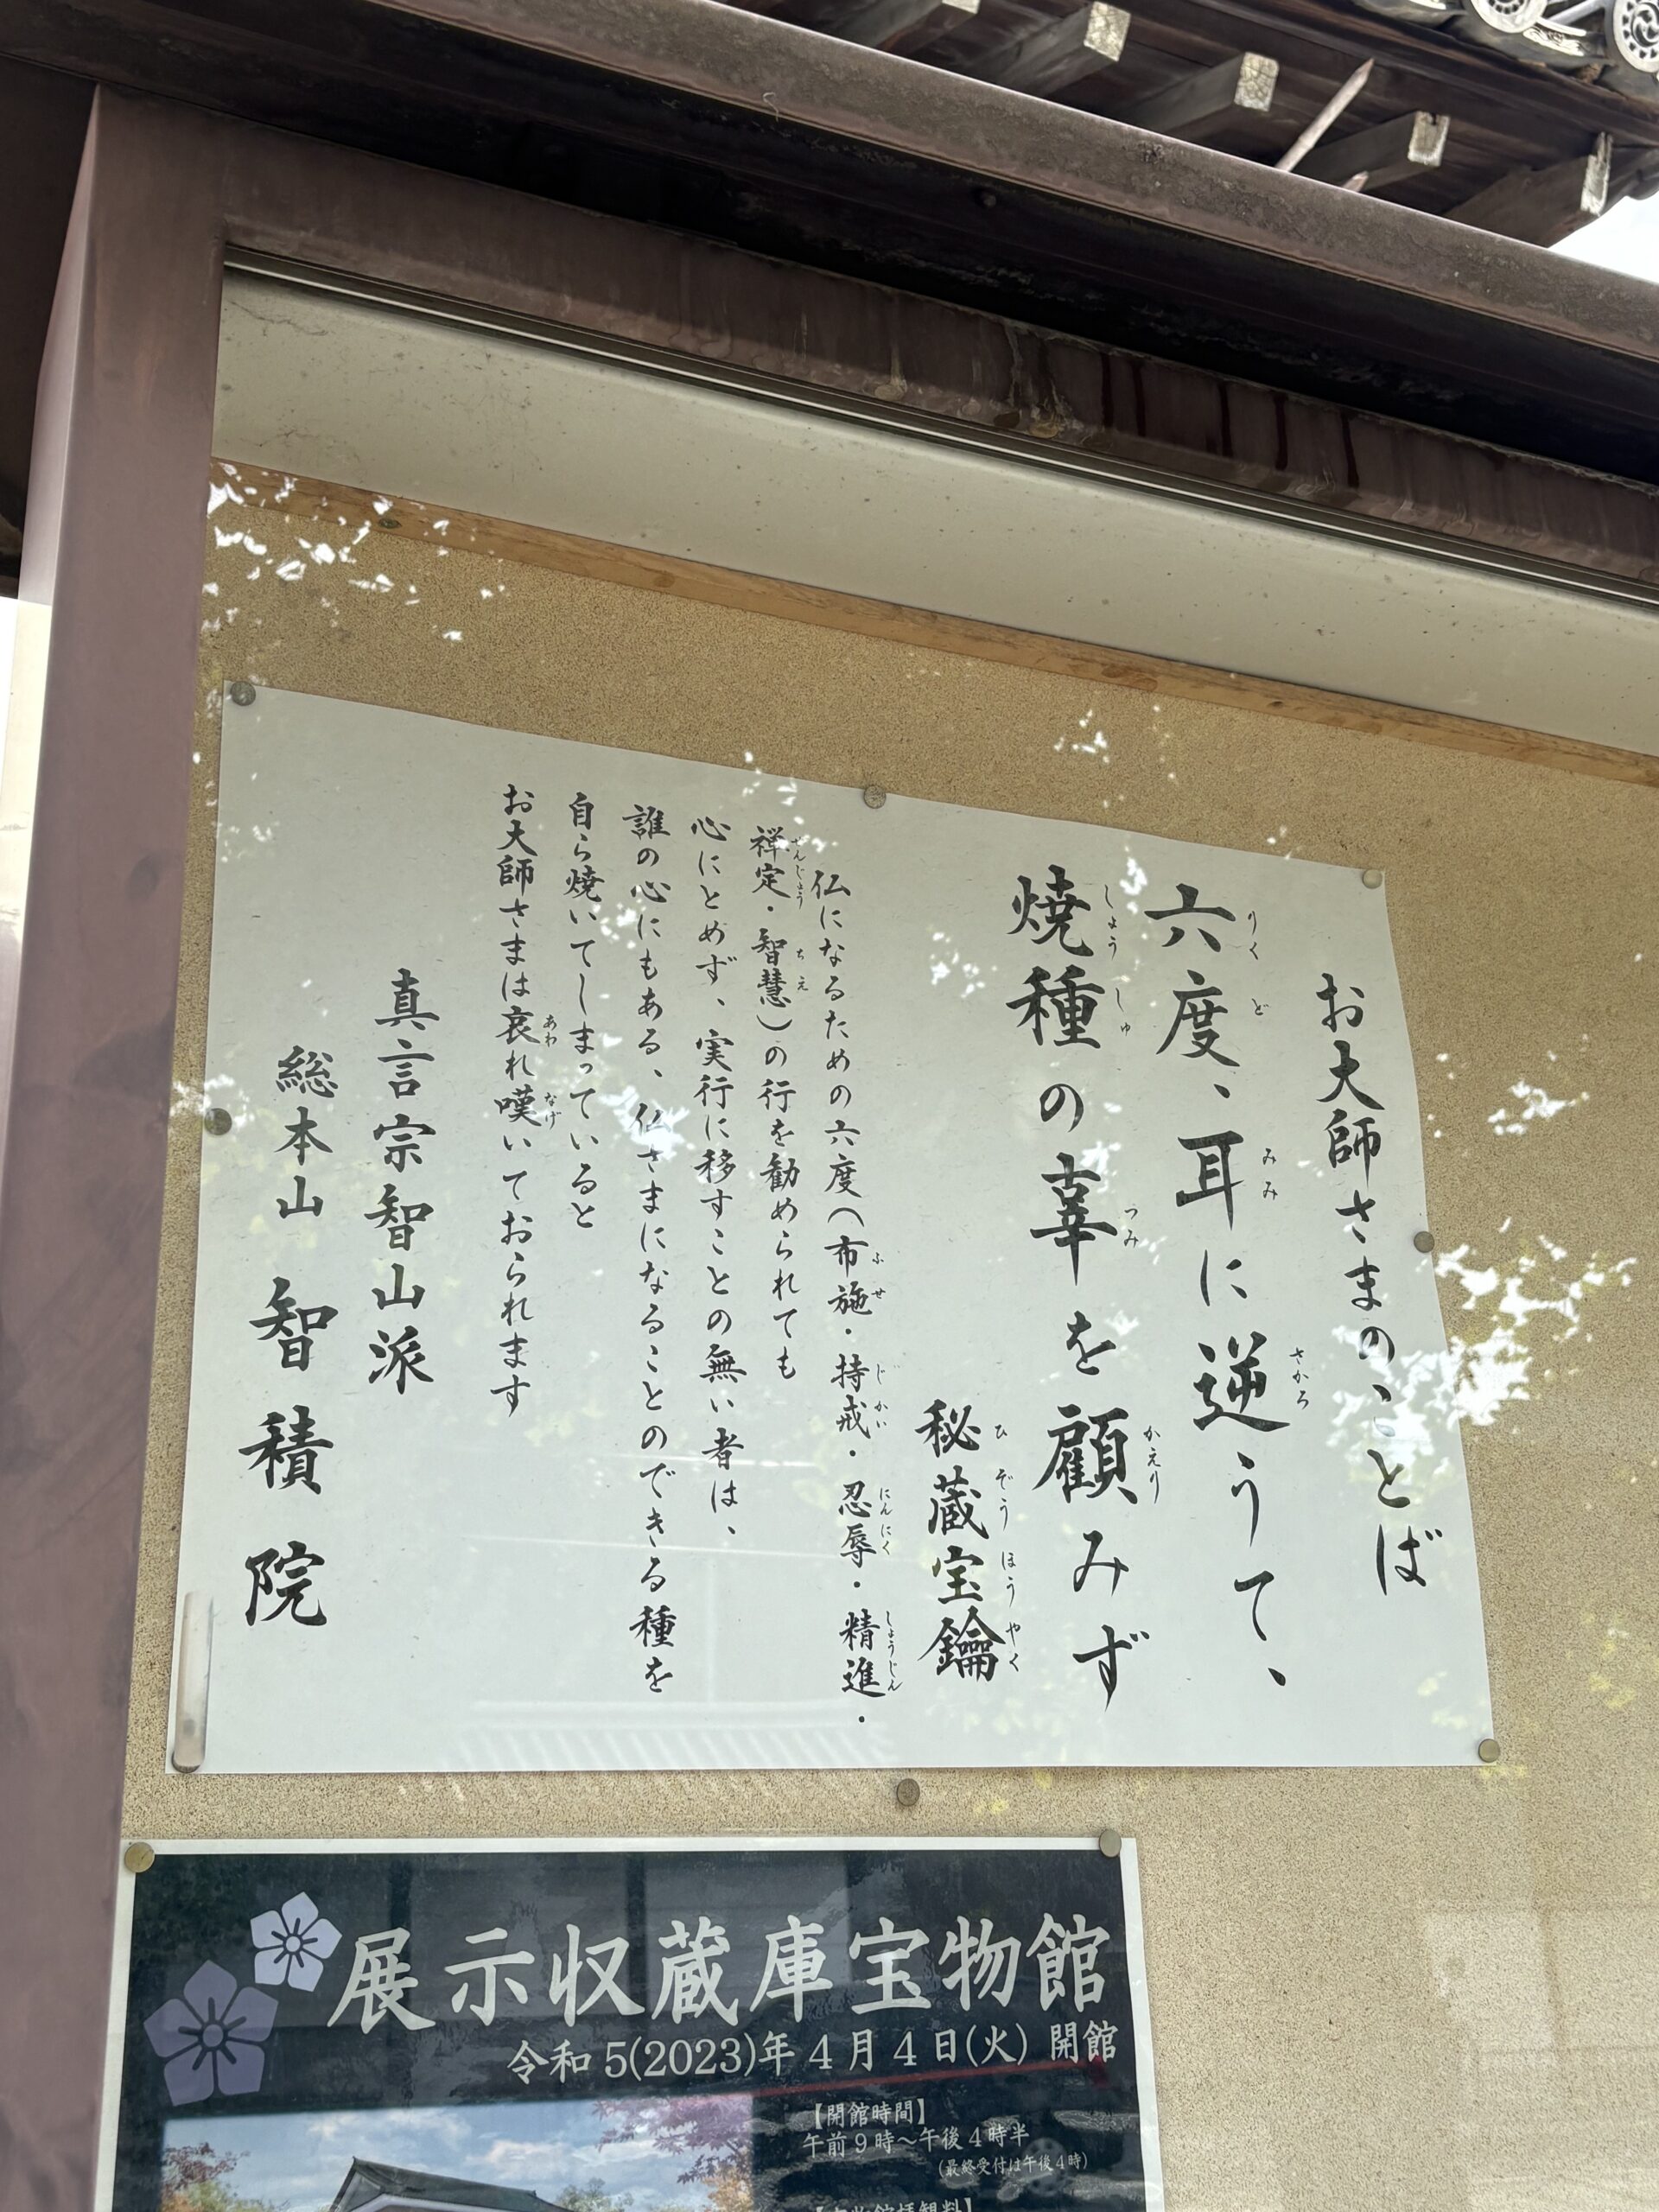 お大師さまのことば
六度、耳に逆うて、
焼種の辜を顧みず
秘蔵宝鑰
仏になるための六度(布施・持戒・忍辱・精進・
禅定・智慧)の行を勧められても
心にとめず、実行に移すことの無い者は、
誰の心にもある、仏さまになることのできる種を
自ら焼いてしまっていると
お大師さまは哀れ嘆いておられます
真言宗智山派
総本山 智積院
展示収蔵庫宝物館
令和5(2023)年4月4日(火) 開館
【開館時間】
午前9時～午後4時半
(最終受付は午後4時)